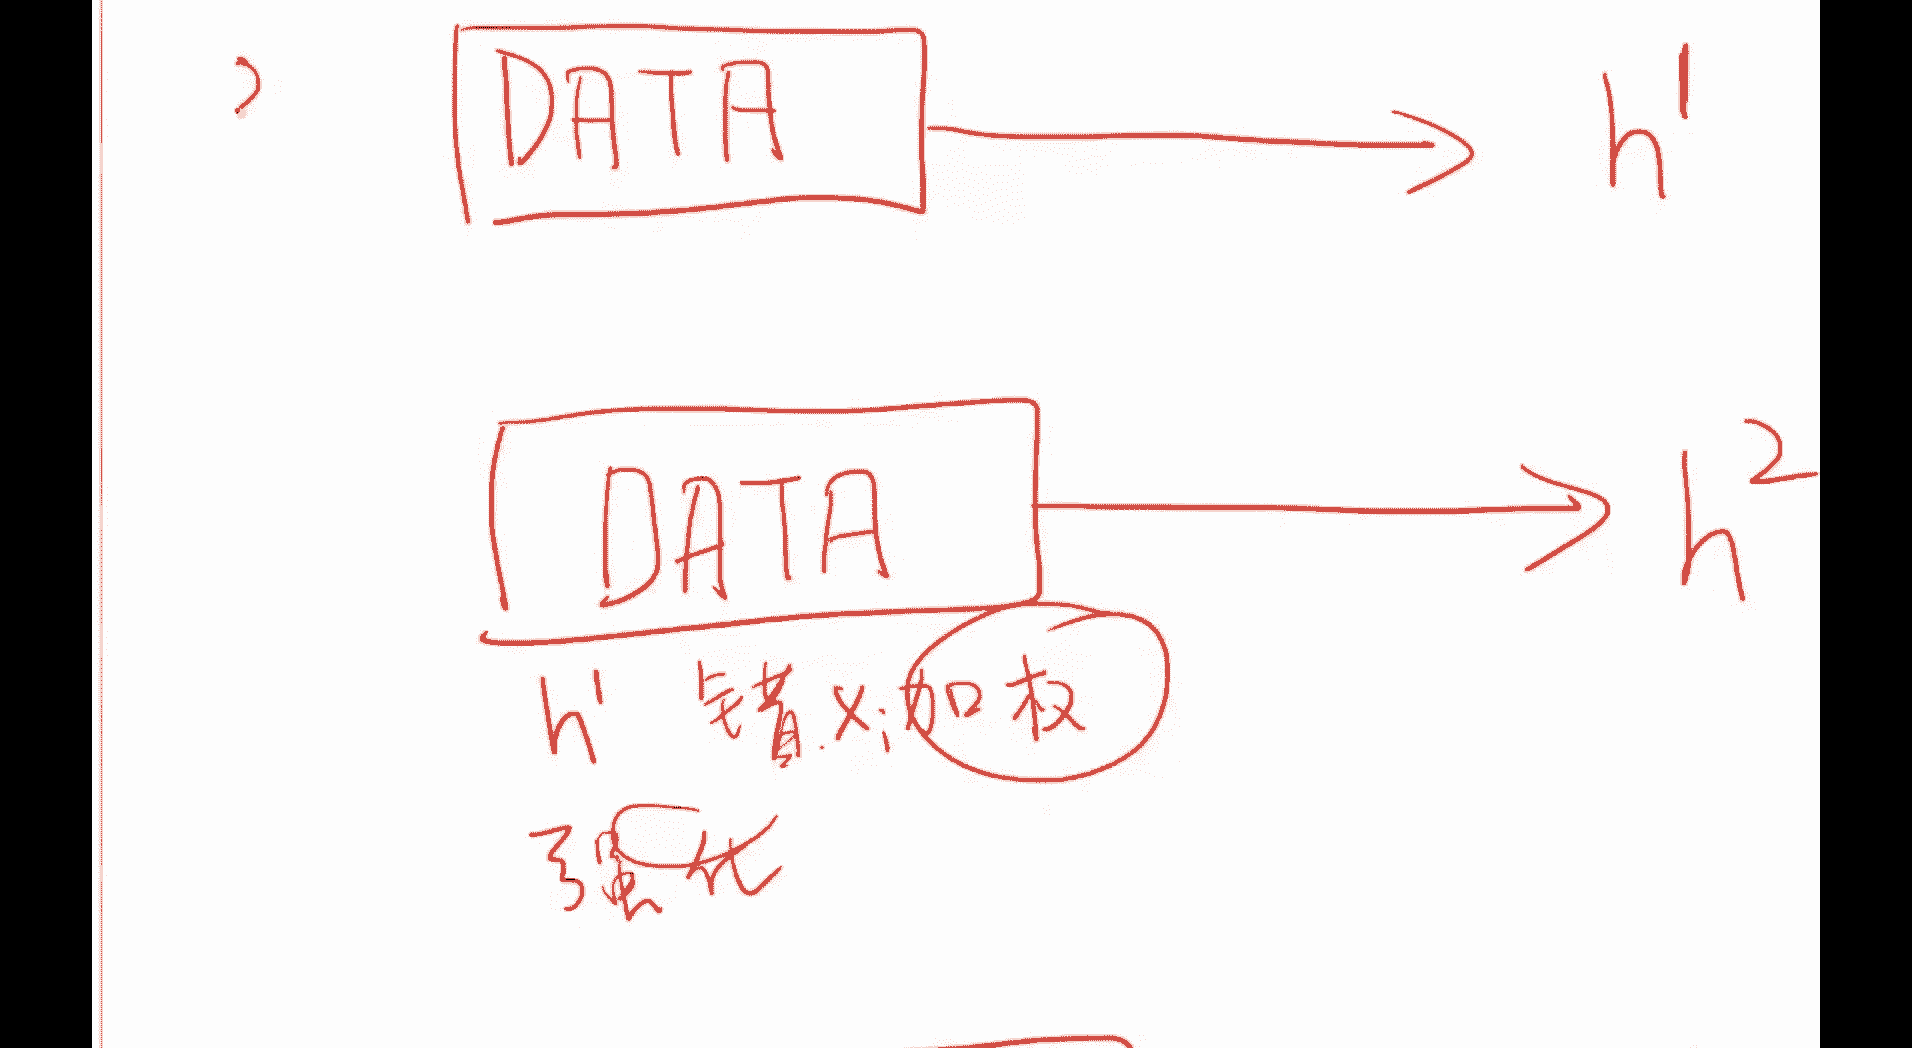 DATA h¹
DATA h²
h¹ 错.xᵢ加权
强化